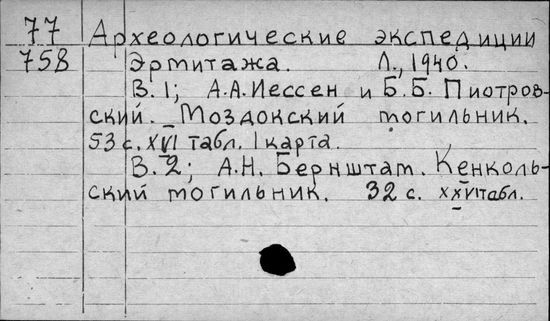 77 Археологические экспедиции
758 Эрмитажа. Л., 1940.
В. 1; А.А. Иессен и Б.Б. Пиотров-
ский. Моздокский могильник.
53 с. XVI табл. 1 карта.
В. 2; А.Н. Бернштам. Кенколь-
ский могильник. 32 с. XXVI табл.